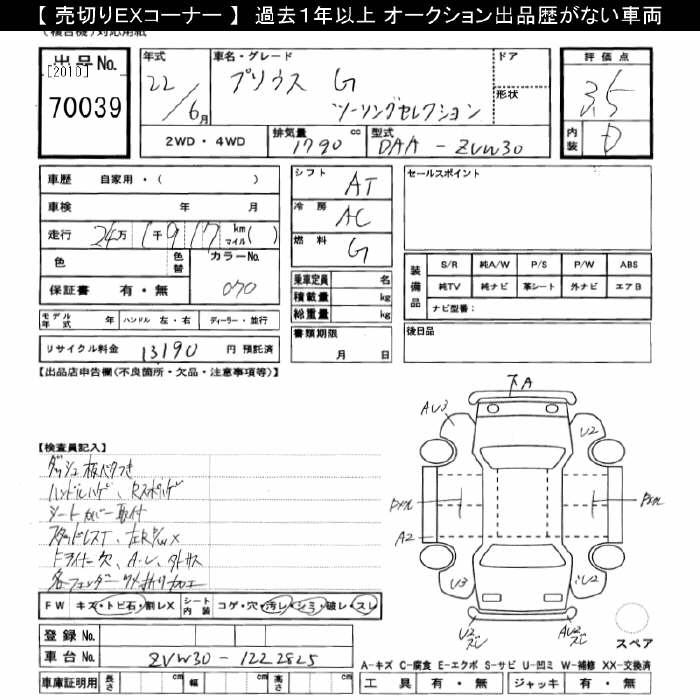 【 売切りEXコーナー 】 過去1年以上 オークション出品歴がない車両
(複合機)対応用紙
出品No.
[2010]
70039
年式
22/6月
車名・グレード
プリウス G
ツーリングセレクション
ドア
形状
評価点
3.5
内装 D
2WD・4WD
排気量 1790 cc
型式 DAA-ZVW30
車歴 自家用・( )
車検 年 月
走行 24万 1千917 km マイル ( )
色
色替
カラーNo.
070
保証書 有・無
モデル年式 年
ハンドル 左・右
ディーラー・並行
リサイクル料金 13190 円 預託済
シフト AT
冷房 AC
燃料 G
乗車定員 名
積載量 kg
総重量 kg
書類期限
月 日
セールスポイント
装備品
S/R 純A/W P/S P/W ABS
純TV 純ナビ 革シート 外ナビ エアB
ナビ型番:
後日品
【出品店申告欄(不良箇所・欠品・注意事項等)】
【検査員記入】
ダッシュ板ベタつき
ハンドルハゲ、
シートカバー取付
スタッドレスT、左R
ドライナー欠、A・L、
各フェンダーツメ折り加工
下A
AU3
U2
A2
U3
U2
U2
AU2
FW キズ・トビ石・割レX
シート内装 コゲ・穴・汚レ・シミ・破レ・スレ
登録No.
車台No. ZVW30-1222825
車庫証明用 長さ cm 幅 cm 高さ cm
スペア
A-キズ C-腐食 E-エクボ S-サビ U-凹ミ W-補修 XX-交換済
工具 有・無 ジャッキ 有・無